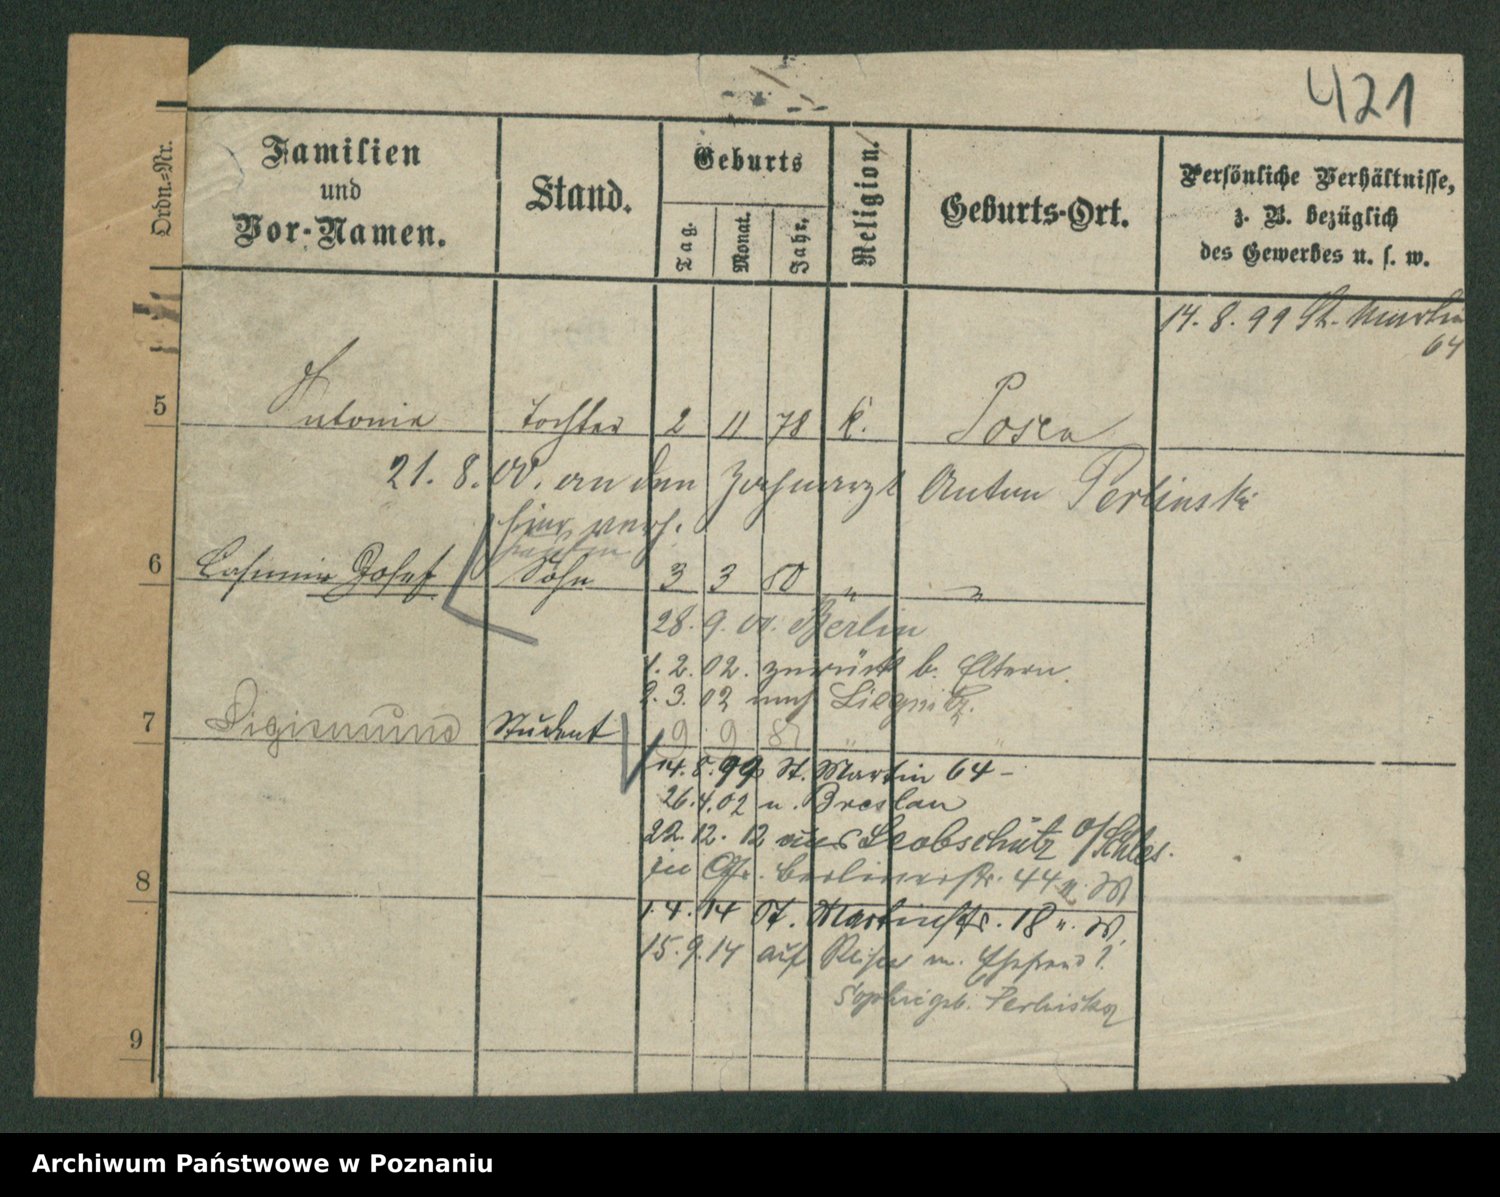 421
Ordn.=Nr.
Familien
und
Vor-Namen.
Stand.
Geburts
Tag.
Monat.
Jahr.
Religion.
Geburts-Ort.
Persönliche Verhältnisse,
z. B. bezüglich
des Gewerbes u. s. w.
14. 8. 99 St. Martin
64
5 Antonie Tochter 2 11 78 k. Posen
21. 8. 00. an den Zahnarzt Anton Perlinski
hier verh.
6 Casimir Josef Sohn 3 3 80 " "
28. 9. 00. Berlin
1. 2. 02. zurück b. Eltern.
2. 3. 02 nach Liegnitz.
7 Sigismund Student 9 9 82 " "
14. 8. 99 St. Martin 64 –
26. 4. 02 n. Breslau
22. 12. 12 aus Leobschütz O/Schles.
in Berlinerstr. 44 n. W
8
1. 4. 14 St. Martinstr. 18 n. W.
15. 9. 14 auf Reisen m. Ehefrau
geb. Perlinska
9
Archiwum Państwowe w Poznaniu